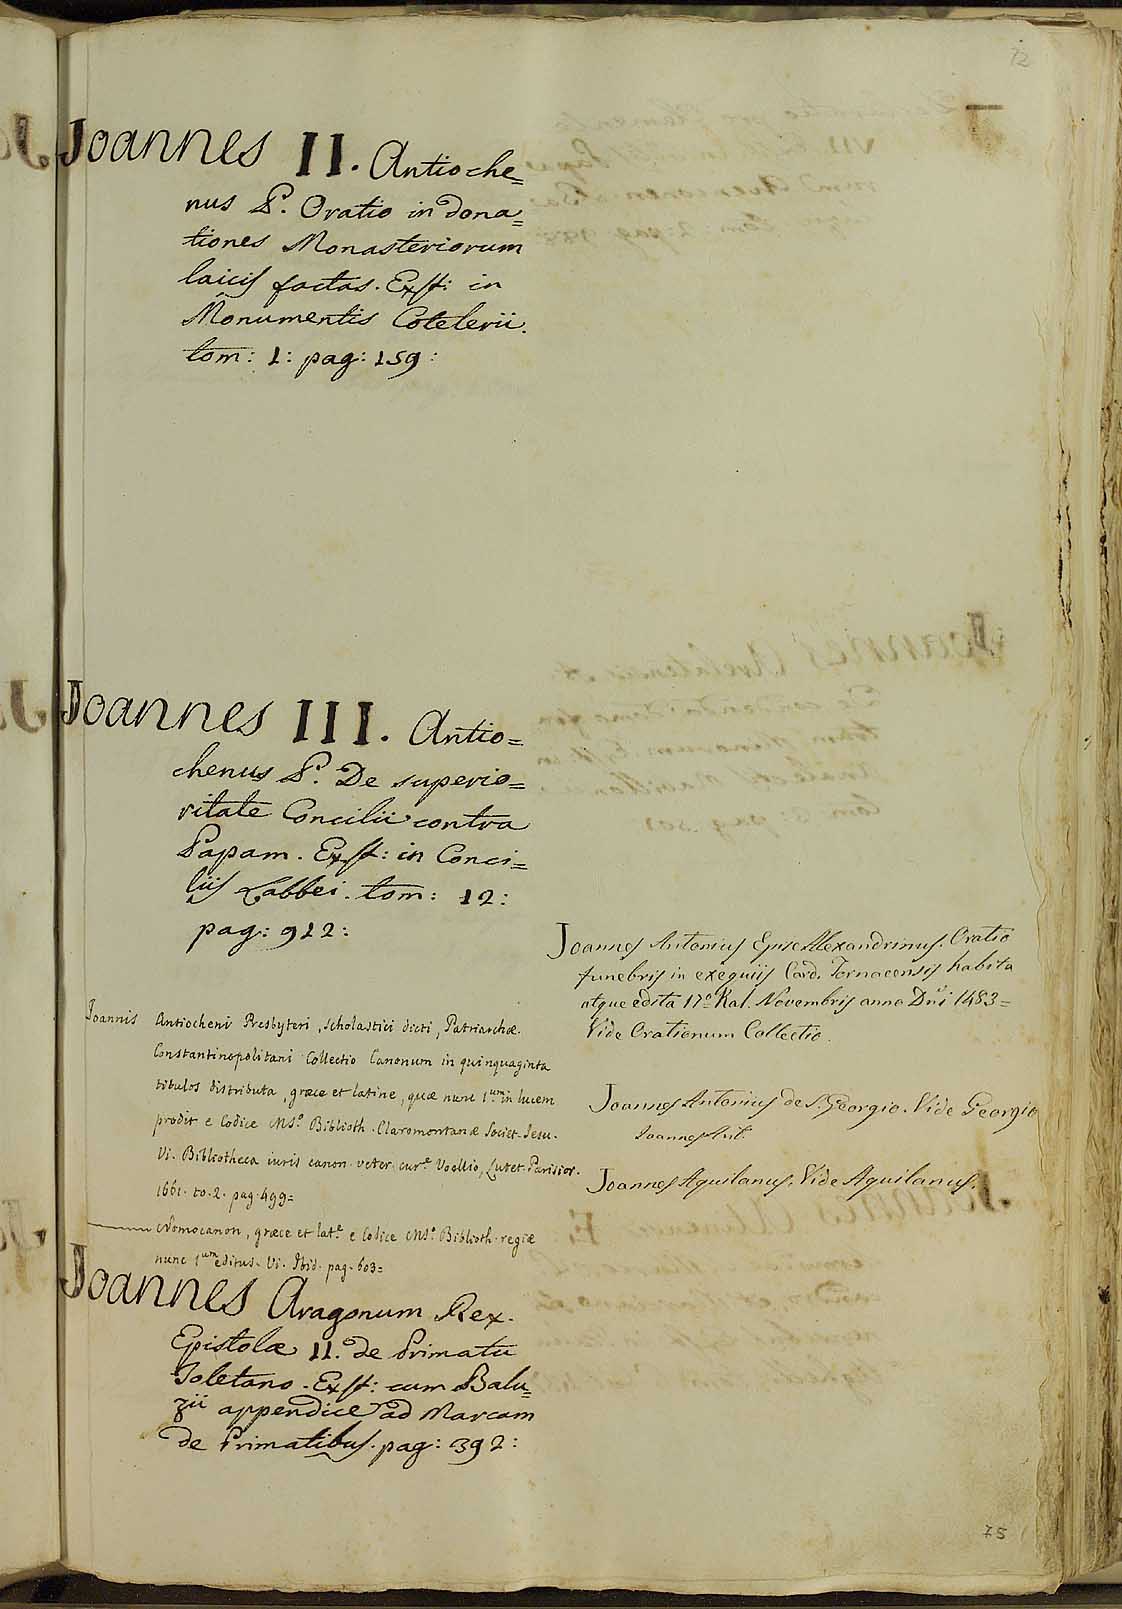 72
Joannes II. Antioche=
nus P. Oratio in dona=
tiones Monasteriorum
laicis factas. Exst: in
Monumentis Cotelerii.
tom: 1: pag: 159:
Joannes III. Antio=
chenus P. De superio=
ritate Concilii contra
Papam. Exst: in Conci=
liis Labbei. tom: 12:
pag: 912:
Joannis Antiocheni Presbyteri, Scholastici dicti, Patriarchæ
Constantinopolitani Collectio Canonum in quinquaginta
titulos distributa, græce et latine, quæ nunc 1.um in lucem
prodit e Codice MS.o Biblioth. Claromontanæ Societ. Jesu.
Vi. Bibliotheca iuris canon. veter. cur.e Voellio, Lutet. Parisior.
1661. to. 2. pag. 499=
Nomocanon, græce et lat.e e Codice MS.o Biblioth. regiæ
nunc 1um editus. Vi. Ibid. pag. 603=
Joannes Aragonum Rex.
Epistolæ II. de Primatu
Toletano. Exst: cum Balu=
zii appendice ad Marcam
de Primatibus. pag: 392:
Joannes Antonius Episc Alexandrinus. Oratio
funebris in exequiis Card. Tornacensis habita
atque edita 17.o Kal. Novembris anno Dni 1483=
Vide Orationum Collectio.
Joannes Antonius de S. Georgio. Vide Georgio
Joannes Ant.
Joannes Aquilanus. Vide Aquilanus.
75